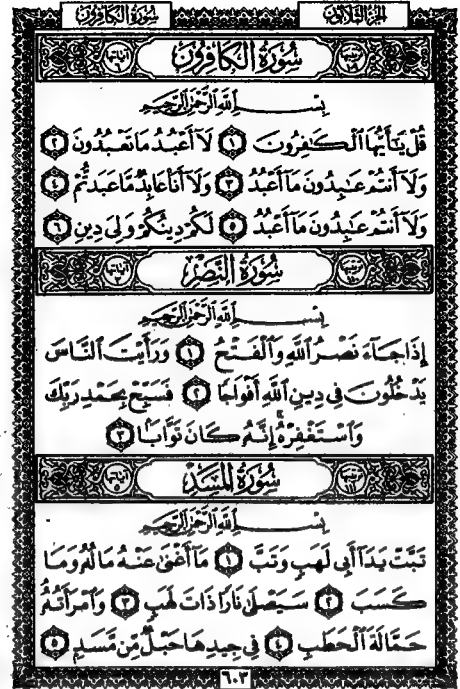 سُورَةُ الكَافِرُونَ
الجُزءُ الثَّلَاثُونَ
ترتيبها ١٠٩ سُورَةُ الكَافِرُونَ آياتها ٦
بِسْمِ اللَّهِ الرَّحْمَٰنِ الرَّحِيمِ
قُلْ يَٰٓأَيُّهَا ٱلْكَٰفِرُونَ ١ لَآ أَعْبُدُ مَا تَعْبُدُونَ ٢
وَلَآ أَنتُمْ عَٰبِدُونَ مَآ أَعْبُدُ ٣ وَلَآ أَنَا۠ عَابِدٌ مَّا عَبَدتُّمْ ٤
وَلَآ أَنتُمْ عَٰبِدُونَ مَآ أَعْبُدُ ٥ لَكُمْ دِينُكُمْ وَلِىَ دِينِ ٦
ترتيبها ١١٠ سُورَةُ النَّصْرِ آياتها ٣
بِسْمِ اللَّهِ الرَّحْمَٰنِ الرَّحِيمِ
إِذَا جَآءَ نَصْرُ ٱللَّهِ وَٱلْفَتْحُ ١ وَرَأَيْتَ ٱلنَّاسَ
يَدْخُلُونَ فِى دِينِ ٱللَّهِ أَفْوَاجًا ٢ فَسَبِّحْ بِحَمْدِ رَبِّكَ
وَٱسْتَغْفِرْهُ إِنَّهُۥ كَانَ تَوَّابًۢا ٣
ترتيبها ١١١ سُورَةُ المَسَدِ آياتها ٥
بِسْمِ اللَّهِ الرَّحْمَٰنِ الرَّحِيمِ
تَبَّتْ يَدَآ أَبِى لَهَبٍ وَتَبَّ ١ مَآ أَغْنَىٰ عَنْهُ مَالُهُۥ وَمَا
كَسَبَ ٢ سَيَصْلَىٰ نَارًا ذَاتَ لَهَبٍ ٣ وَٱمْرَأَتُهُۥ
حَمَّالَةَ ٱلْحَطَبِ ٤ فِى جِيدِهَا حَبْلٌ مِّن مَّسَدٍۭ ٥
٦٠٣